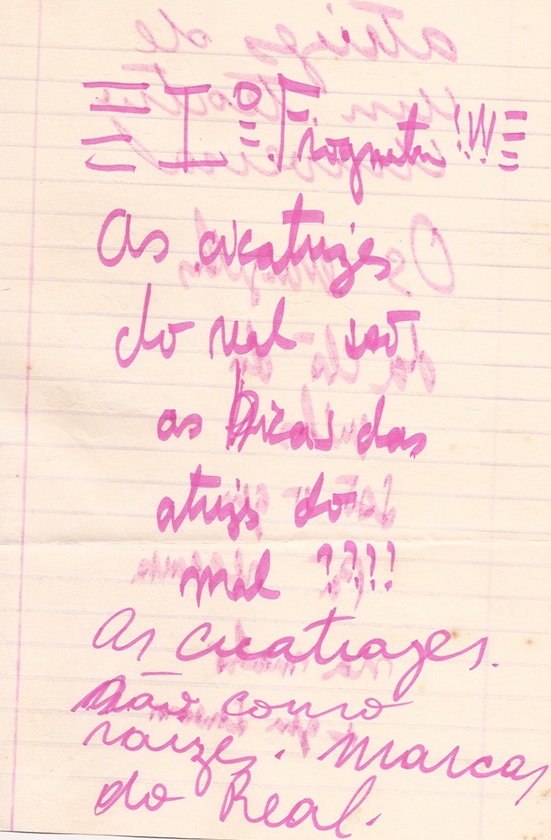 1º Fragmento!!!
As cicatrizes
do real são
as dicas das
atrizs do
mal ????
As cicatrazes.
São como
raizes. Marcas
do Real.